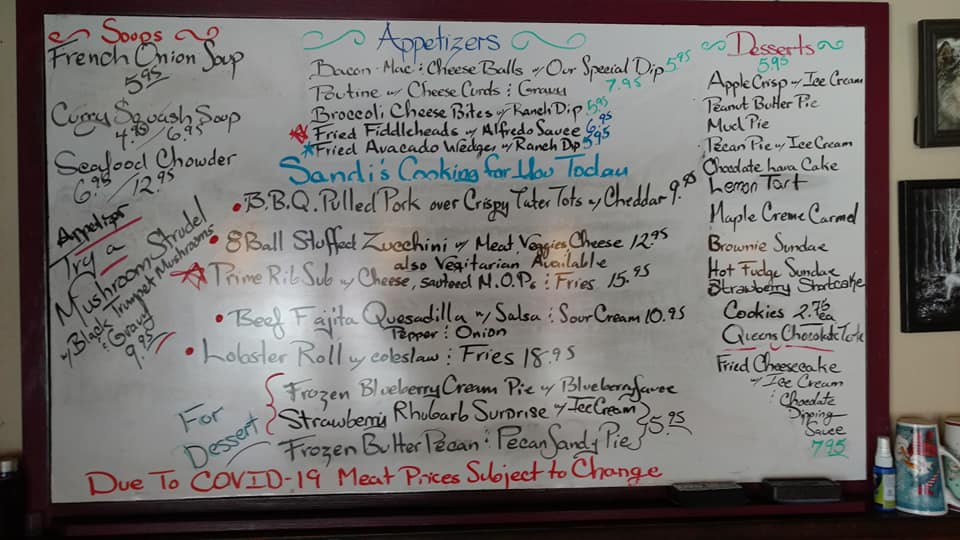 Soops
French Onion Soup
5.95
Curry Squash Soup
4.95/6.95
Seafood Chowder
6.95/12.95
Appetizer
Try a
Mushroom Strudel
w/ Black Trumpet Mushrooms
: Gravy
9.95
Appetizers
Bacon-Mac : Cheese Balls w/ Our Special Dip 5.95
Poutine w/ Cheese Curds : Gravy 7.95
Broccoli Cheese Bites w/ Ranch Dip 5.95
Fried Fiddleheads w/ Alfredo Sauce 6.95
Fried Avacado Wedges w/ Ranch Dip 5.95
Sandi's Cooking for You Today
B.B.Q. Pulled Pork over Crispy Tater Tots w/ Cheddar 9.95
8Ball Stuffed Zucchini w/ Meat Veggies Cheese 12.95
also Vegitarian Available
Prime Rib Sub w/ Cheese, sauteed M.O.Ps : Fries 15.95
Beef Fajita Quesadilla w/ Salsa : Sour Cream 10.95
Pepper : Onion
Lobster Roll w/ coleslaw : Fries 18.95
For
Dessert
Frozen Blueberry Cream Pie w/ Blueberry Sauce
Strawberry Rhubarb Surprise w/ Ice Cream
Frozen Butter Pecan : Pecan Sandy Pie
5.95
Due To COVID-19 Meat Prices Subject to Change
Desserts
5.95
Apple Crisp w/ Ice Cream
Peanut Butter Pie
Mud Pie
Pecan Pie w/ Ice Cream
Chocolate Lava Cake
Lemon Tart
Maple Creme Carmel
Brownie Sundae
Hot Fudge Sundae
Strawberry Shortcake
Cookies 2.75 ea
Queens Chocolate Torte
Fried Cheesecake
w/ Ice Cream
: Chocolate
Dipping
Sauce
7.95